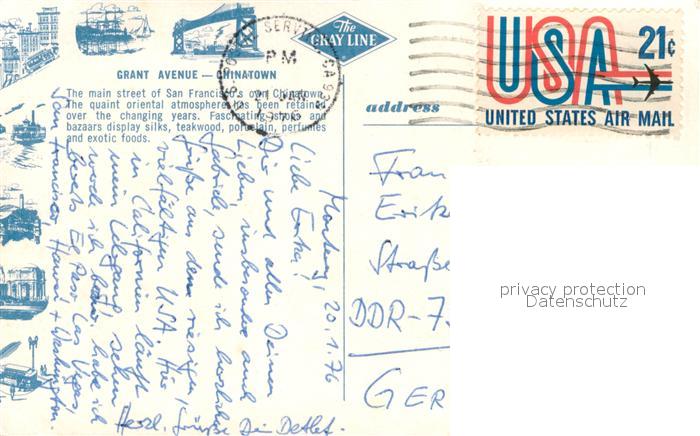 The
GRAY LINE
GRANT AVENUE — CHINATOWN
The main street of San Francisco's own Chinatown.
The quaint oriental atmosphere has been retained
over the changing years. Fascinating shops and
bazaars display silks, teakwood, porcelain, perfumes
and exotic foods.
address
USA 21¢
UNITED STATES AIR MAIL
PM
1976
Monterey, 20.1.76
Liebe Erika!
Dir und allen Deinen
Lieben, insbesondere auch
Gabriele, sende ich herzliche
Grüße aus dem riesigen,
vielfältigen USA. Hier
in Californien läuft
mein Lehrgang schon
werde ich habe ich
bereits El Paso, Las Vegas,
San Francisco, Hawaii + Washington.
Herzl. Grüße Dein Detlef.
Fran
Erik
Straße
DDR-7
GER
privacy protection
Datenschutz